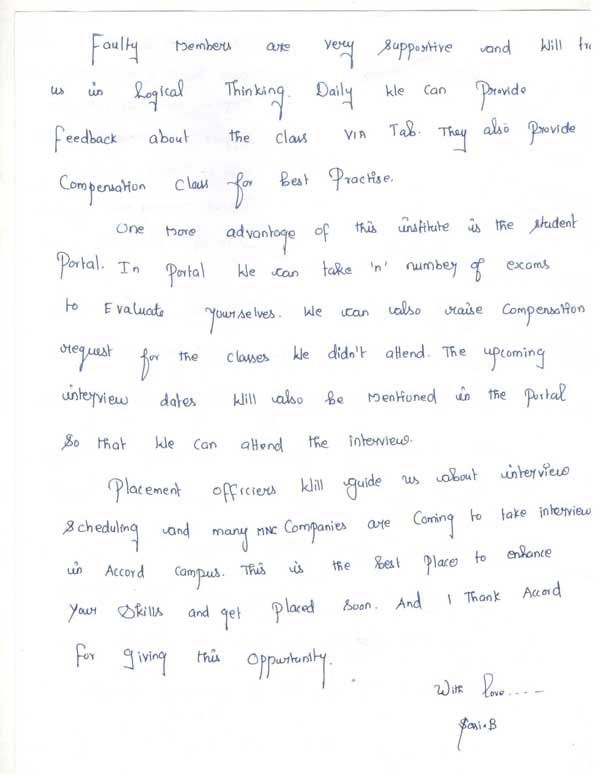 Faulty Members are very supportive and Will tra
us in Logical Thinking. Daily We Can Provide
feedback about the class VIA Tab. They also Provide
Compensation Class for Best Practise.
One More advantage of this institute is the student
Portal. In Portal We can take 'n' number of exams
to Evaluate yourselves. We can also raise Compensation
request for the classes We didn't attend. The upcoming
interview dates Will also be Mentioned in the Portal
So that We Can attend the interview.
Placement officiers Will guide us about interview
Scheduling and many MNC Companies are Coming to take interview
in Accord Campus. This is the Best Place to enhance
Your Skills and get Placed Soon. And I Thank Accord
for giving this Oppurtunity.
With love....-
Sasi.B